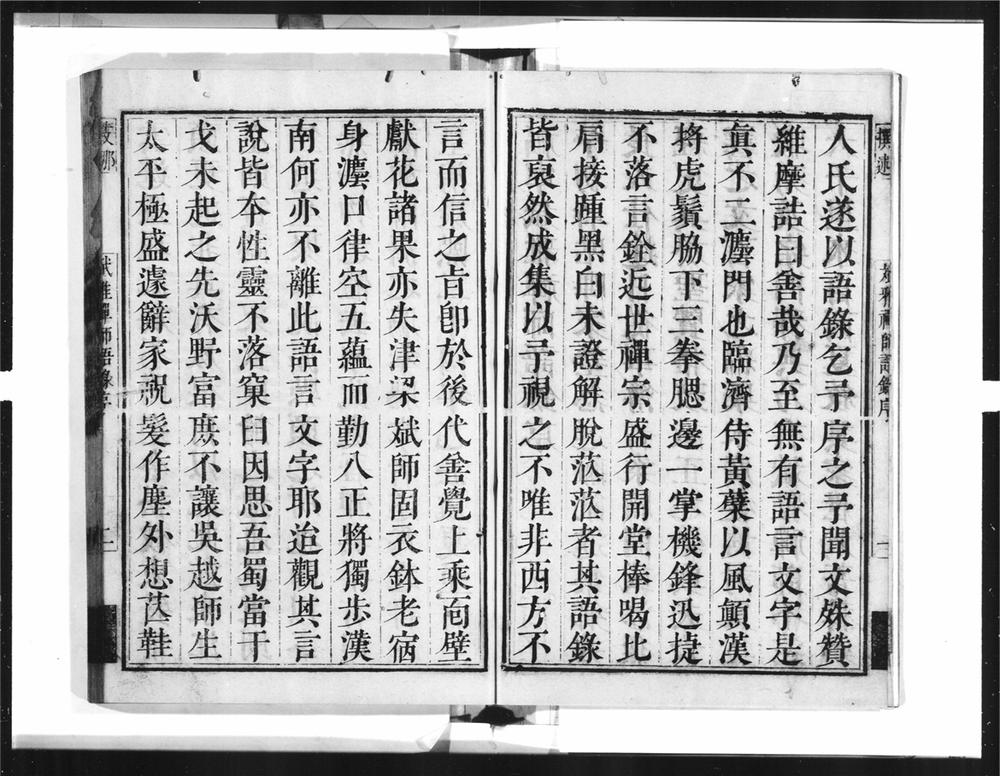 人氏遂以語錄乞予序之予聞文殊贊
維摩詰曰善哉乃至無有語言文字是
真不二灋門也臨濟侍黃蘗以風顛漢
捋虎鬚脇下三拳腮邊一掌機鋒迅捷
不落言銓近世禪宗盛行開堂棒喝比
肩接踵黑白未證解脫茫茫者其語錄
皆裒然成集以予視之不唯非西方不
言而信之旨卽於後代善覺上乘面壁
獻花諸果亦失津梁斌師固衣鉢老宿
身灋口律空五蘊而勤八正將獨步漢
南何亦不離此語言文字耶迨觀其言
說皆本性靈不落窠臼因思吾蜀當干
戈未起之先沃野富庶不讓吳越師生
太平極盛遽辭家祝髮作塵外想芒鞋
撰述
雅禪師語錄序
二
雅禪師語錄序